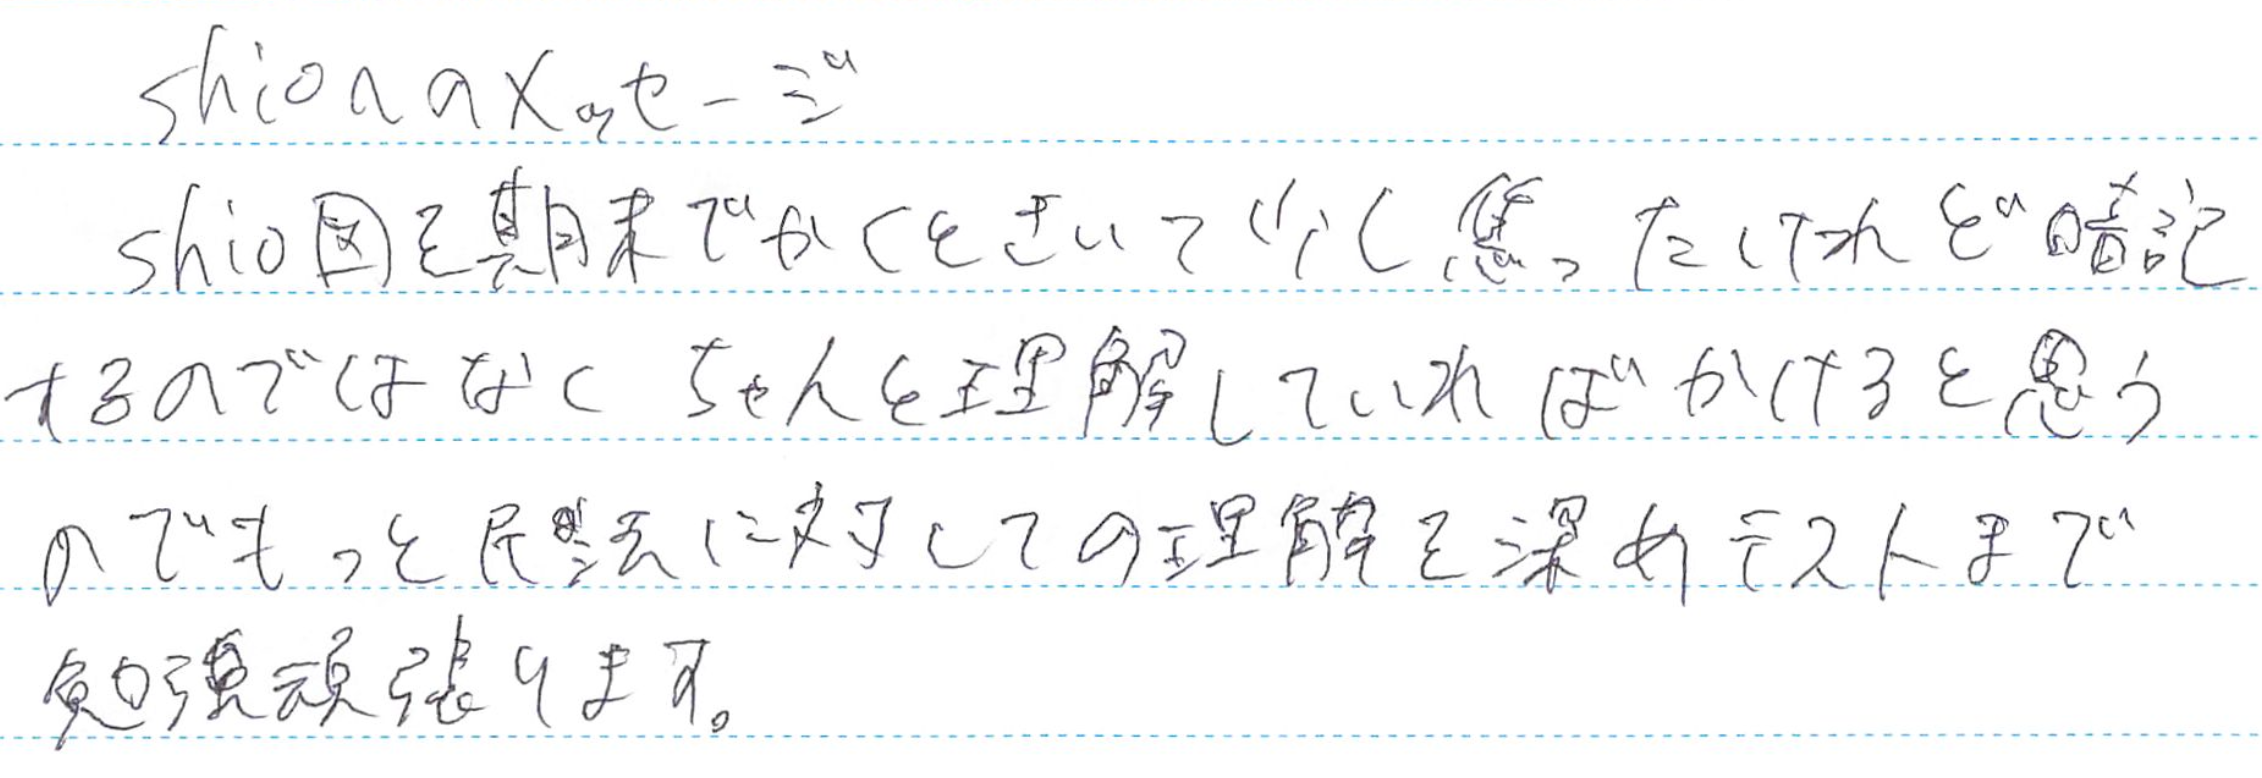 shioへのメッセージ
shio図を期末でかくときいて少し焦ったけれど暗記
するのではなく ちゃんと理解していればかけると思う
のでもっと民法に対しての理解を深めテストまで
勉強頑張ります。